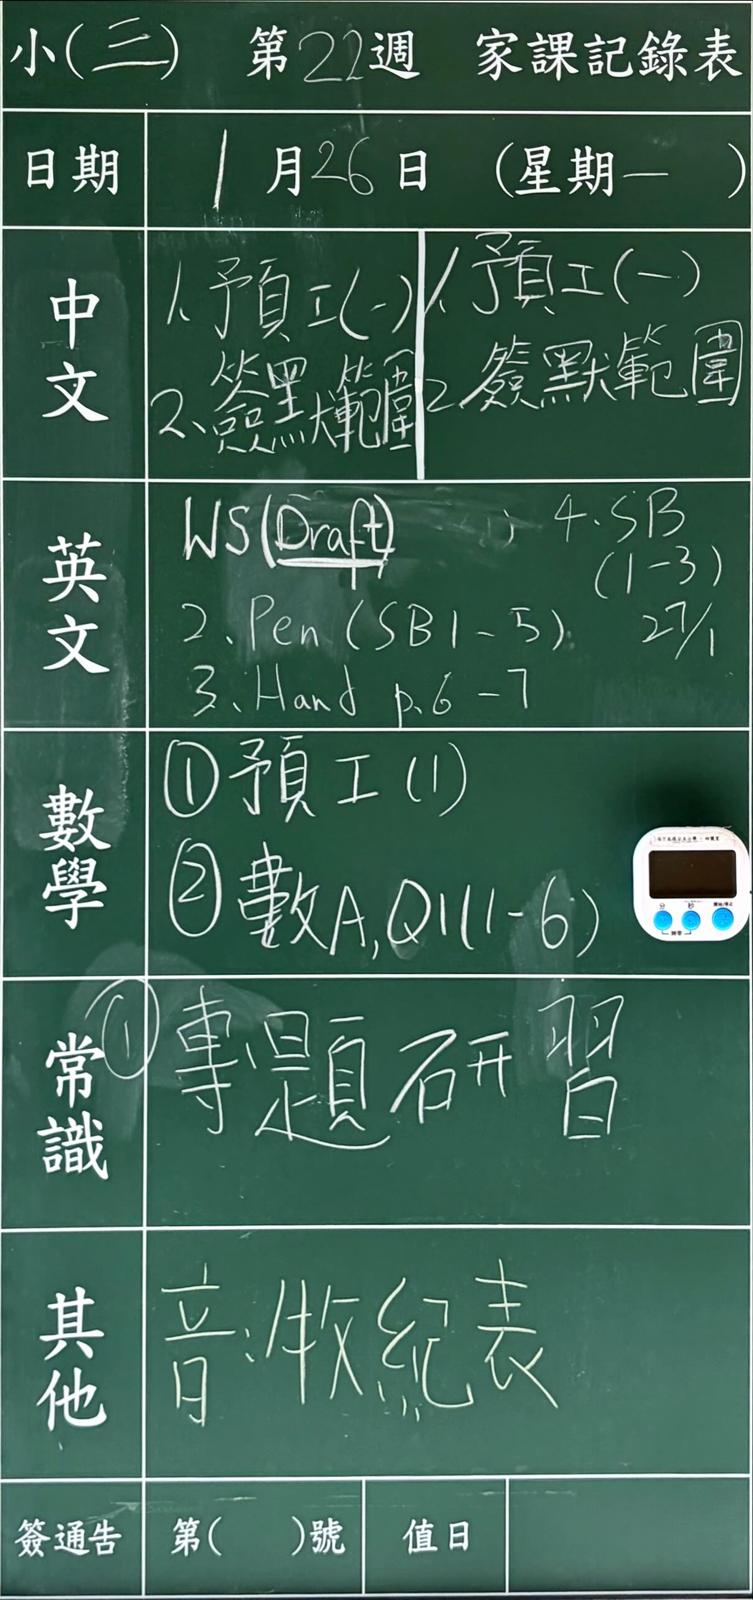 小(三) 第22週 家課記錄表
日期 1月26日 (星期一 )
中文
1.預工(一)
2.簽默範圍
1.預工(一)
2.簽默範圍
英文
WS(Draft)
2.Pen (SB1-5)
3.Hand p.6-7
4.SB
(1-3)
27/1
數學
①預工(1)
②數A,Q1(1-6)
分 秒
常識
①專題研習
其他
音:收紀表
簽通告 第( )號 值日